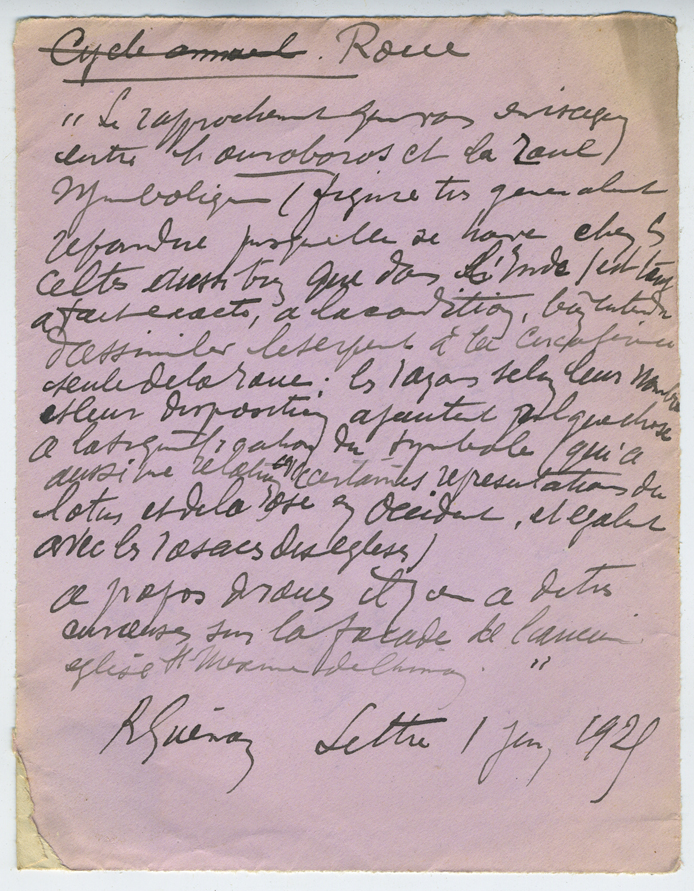 Cycle annuel. Roue
"Le rapprochement que vous envisagez
entre l'ouroboros et la roue
symbolique (figure très généralement
répandue puisqu'elle se trouve chez les
celtes aussi bien que dans l'Inde) est tout
a fait exacte, a la condition, bien entendu
d'assimiler le serpent à la circonférence
seule de la roue; les rayons selon leur nombre
et leur disposition ajoutent quelque chose
a la signification du symbole (qui a
aussi une relation avec certaines représentations du
lotus et de la rose en Occident, et également
avec les rosaces des eglises)
a propos de roues il y en a de très
curieuses sur la façade de l'ancienne
eglise St Mexme de Chinon. "
R Guénon Lettre 1 juin 1925